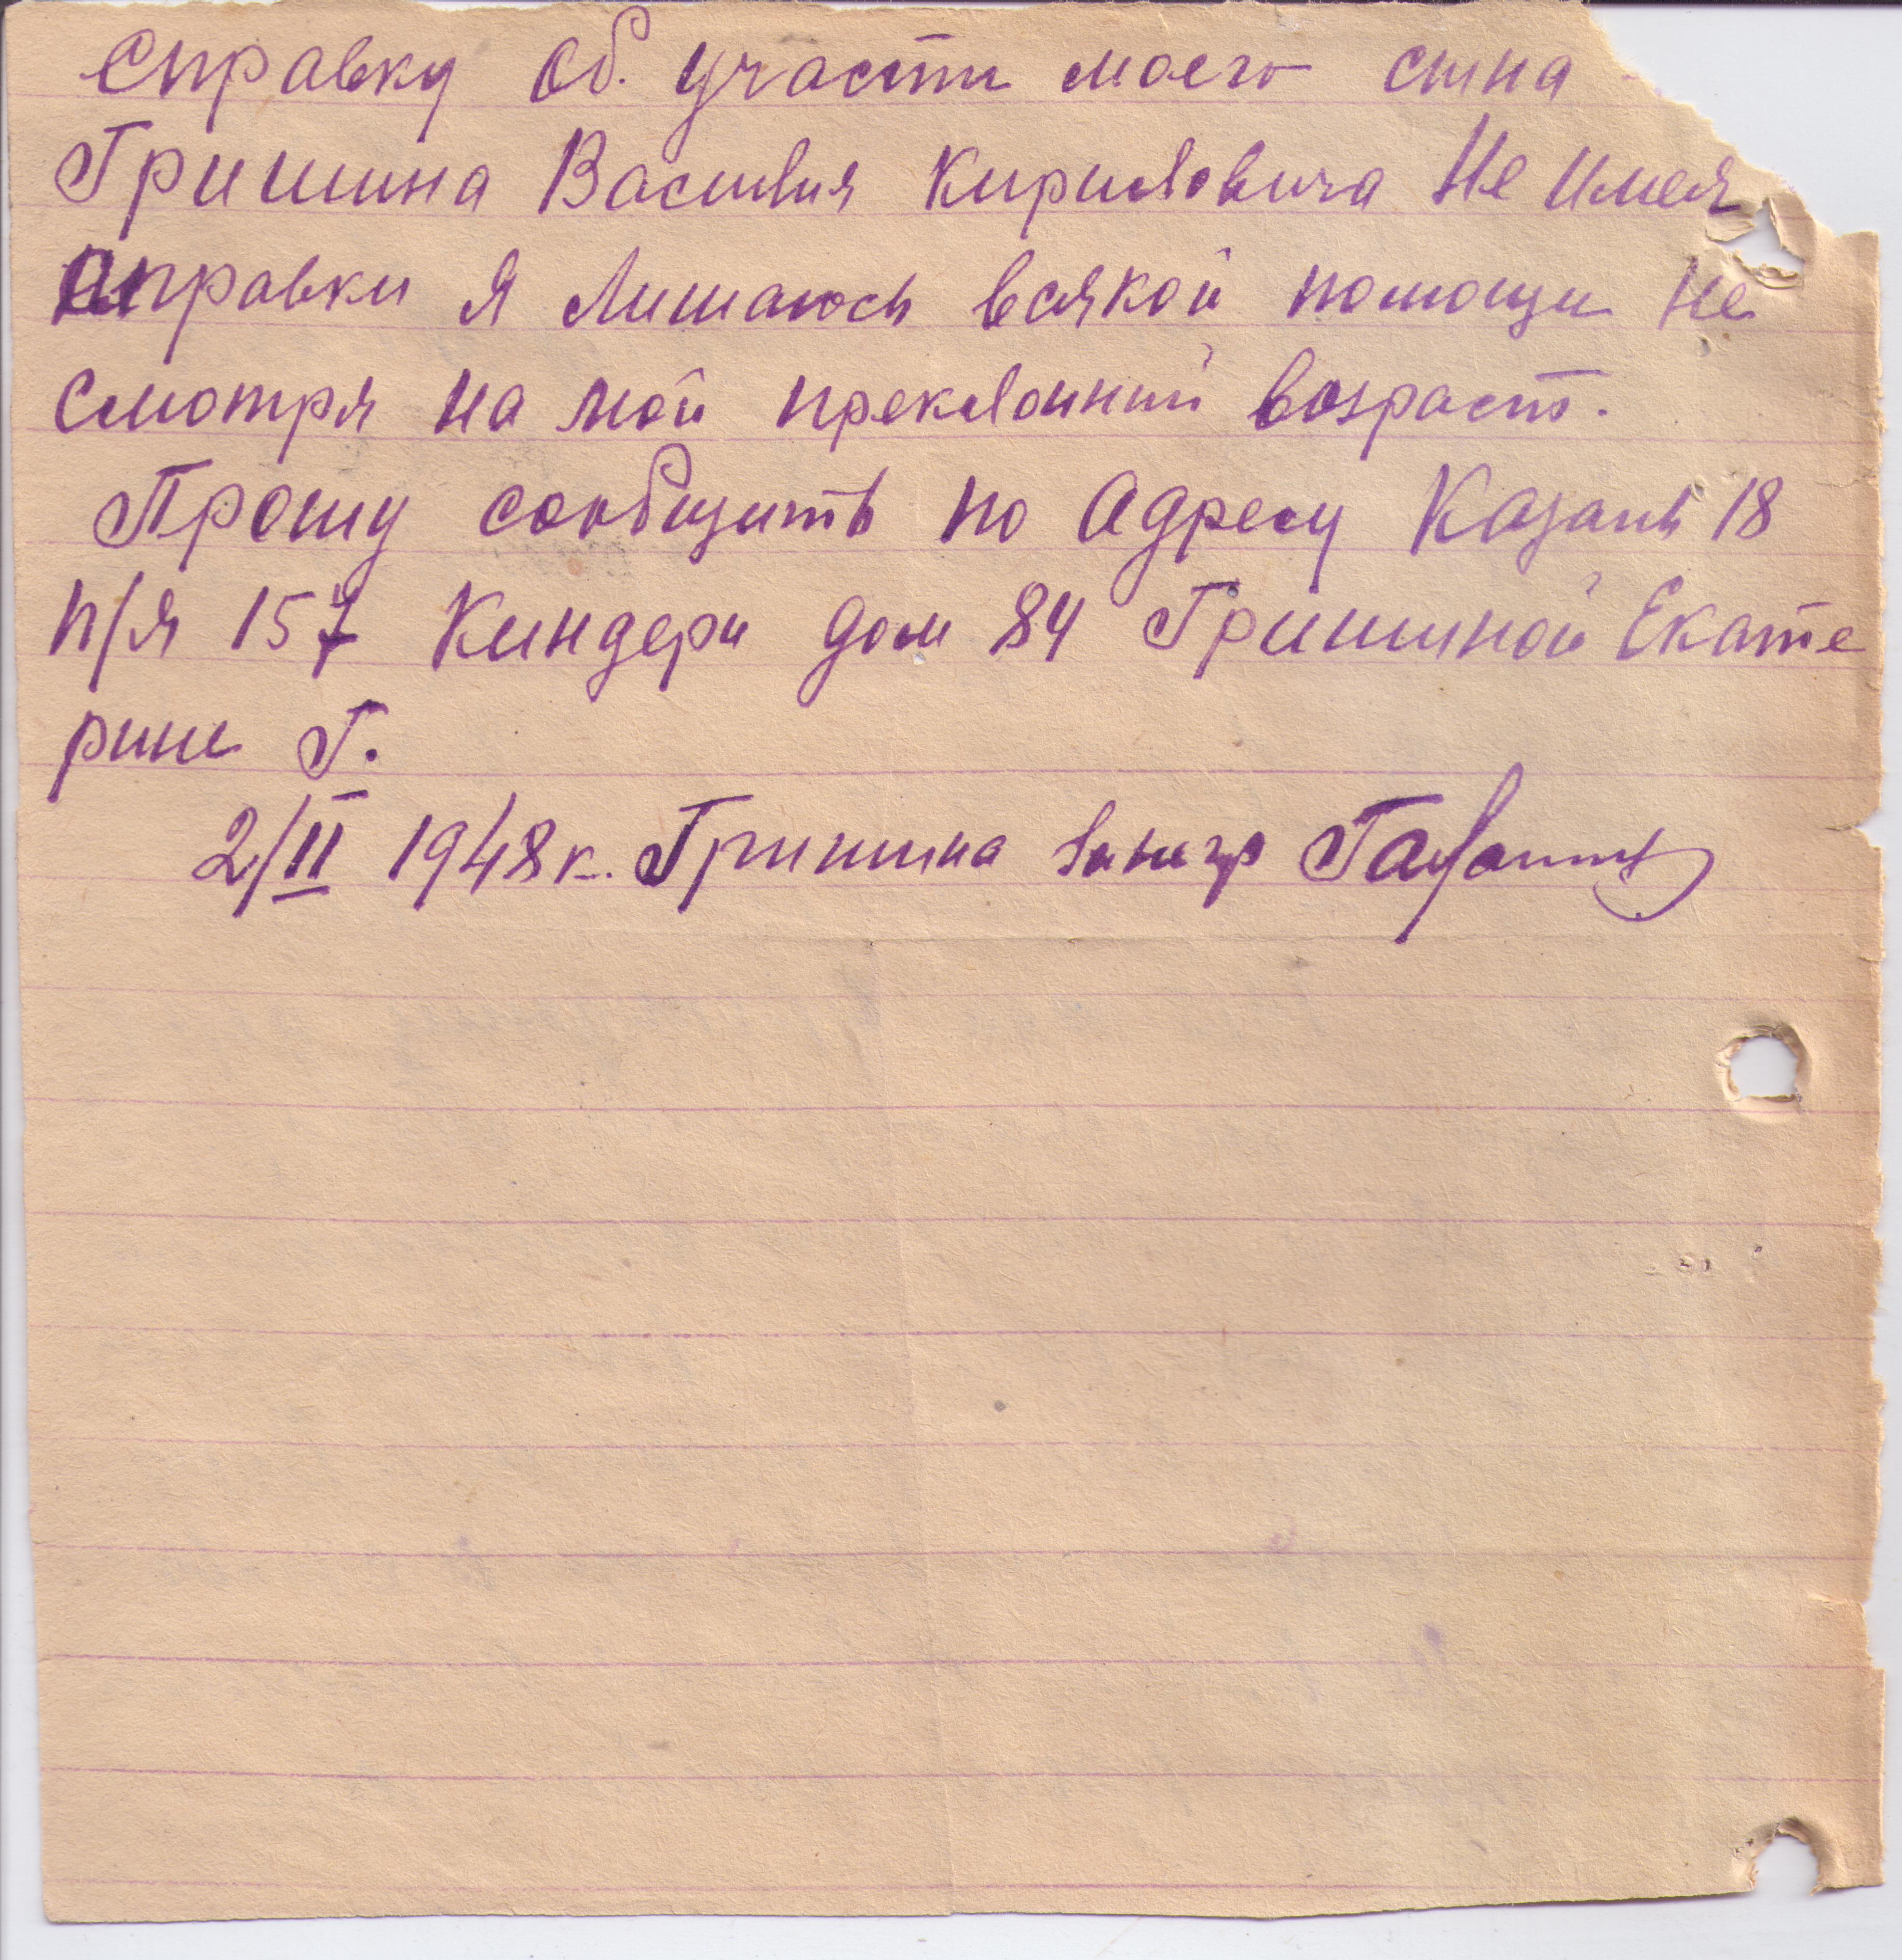 Справку об. участи моего сына
Гришина Василия Кириловича Не имея
справки я Лишаюсь всякой помощи не
смотря на мой преклонний возраст.
Прошу сообщить по адресу Казань 18
п/я 157 Киндери дом 84 Гришиной Екате
рине Г.
2/II 1948 Гришина